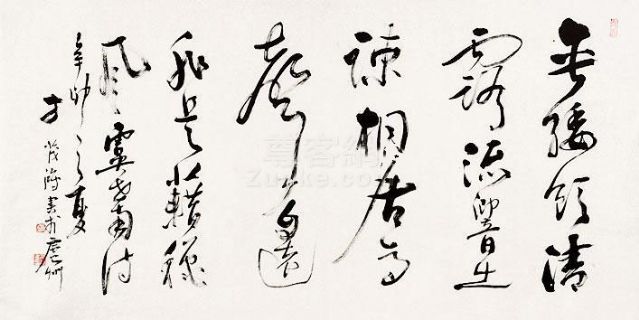 垂緌飲清
露流響出
疎桐居高
聲自遠
非是藉秋
風虞世南詩
辛卯之夏
茂海書於
尊客網
Zunke.com